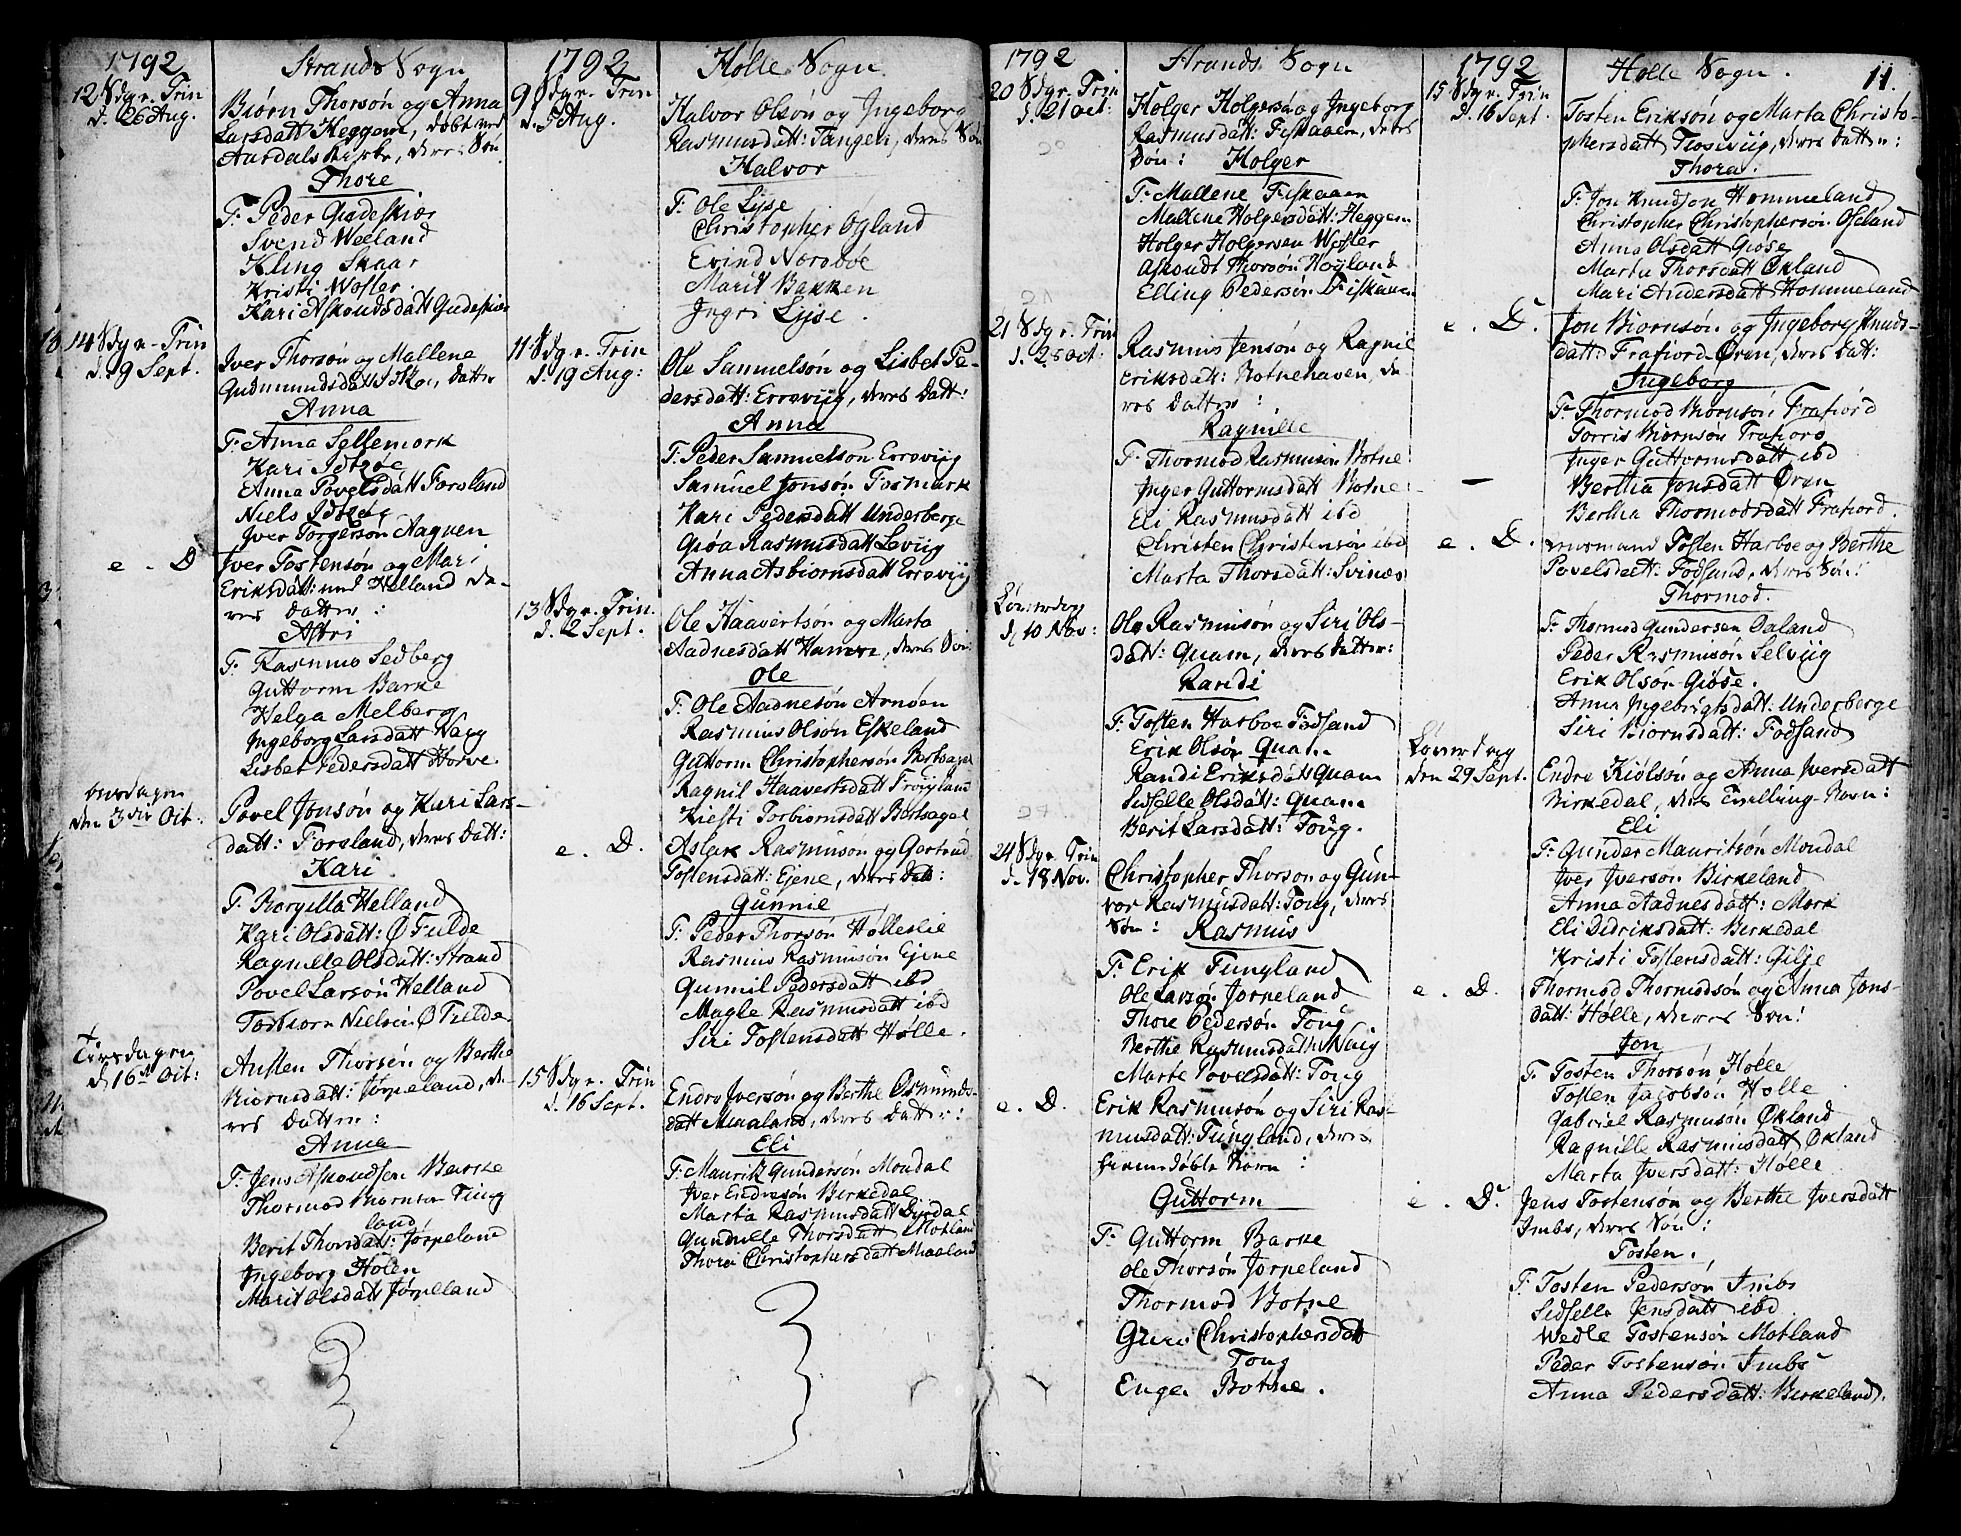 1792
Strands Sogn
12 Sdg. e. Trin
d. 26 Aug.
Biørn Thorsøn og Anna
Larsdatt Heggem, døbt ved
Aardals Kirke, deres Søn
Thore
F. Peder Gudeskiær
Svend Weeland
Kling Skaar
Kristi Wosler.
Kari Askoutsdatt Gudeskiær
14 Sdg. e. Trin
d. 9 Sept.
Iver Thorsøn og Mallene
Gudmundsdatt: Idsøe, Datter
Anna
F. Anna Sellemork
Kari Idsøe
Anna Povelsdatt Forsland
Niels Idsøe
Iver Torgersøn Aagnen
e. D
Iver Tostensøn og Mari
Eriksdatt: Helland de-
res Datter:
Astri
F. Rasmus Sedberg
Guttorm Barke
Helga Melberg
Ingeborg Larsdatt Vagg
Lisbet Pedersdatt Horve
den 3die Oct:
Povel Jonsøn og Kari Lars-
datt: Forsland, deres Datt:
Kari
F. Borgilla Helland
Kari Olsdatt: Ø Fulde
Ragnille Olsdatt: Strand
Povel Larsøn Helland
Torbiorn Nielsøn Ø Fulde
Tirsdagen
d. 16de Oct:
Austen Thorsøn og Berthe
Biornsdatt: Jørpeland, de-
res Datter:
Anna
F. Jens Askoudsen Barke
Thormod Thormsen Tung
land
Berit Thorsdatt: Jørpeland
Ingeborg Holen
Marit Olsdatt Jørpeland
1792
Holle Sogn
9 Sdg. e. Trin
d. 5 Aug.
Halvor Olsøn og Ingeborg
Rasmusdatt: Tangen, deres Søn
Halvor
F. Ole Lyse
Christopher Øgland
Evind Nærebøe
Marit Bakken
Ingri Lyse.
11 Sdg. e. Trin
d. 19 Aug:
Ole Samuelsøn og Lisbet Pe-
dersdatt: Erreviig, deres Datt:
Anna
F. Peder Samuelsøn Erreviig
Samuel Jonsøn Fosmark
Kari Pedersdatt Underberge
Gioa Rasmusdatt Leviig
Anna Asbiornsdatt Erreviig
13 Sdg. e. Trin.
d. 2 Sept.
Ole Haavertsøn og Marta
Aadnesdatt, deres Søn:
Ole
F. Ole Aadnesøn Arnøen
Rasmus Olsøn Eskeland
Guttorm Christophersøn Bertsagel
Ragnil Haavertsdatt Frøyland
Kiesti Torbiornsdatt Bertsagel
e. D.
Aslak Rasmusøn og Gertrud
Tostensdatt: Eiene, deres Datt:
Gunnil
F. Peder Thorsøn Hølleslie
Rasmus Rasmusøn Eiene
Gunnil Pedersdatt ibd
Magle Rasmusdatt ibd
Siri Tostensdatt Hølle.
15 Sdg. e. Trin
d. 16 Sept.
Endre Iversøn og Berthe Osmunds-
datt Maaland, deres Datter:
Eli
F. Mauritz Gundersøn Mondal
Iver Endresøn Birkedal
Marta Rasmusdatt Lysdal
Gundille Thorsdatt Motland
Thora Christophersdatt Maaland
1792
Strands Sogn
20 Sdg. e. Trin
d. 21 Oct:
Holger Holgersøn og Ingeborg
Rasmusdatt: Fiskaaen, deres
Søn: Holger
F. Mallene Fiskaaen
Mallene Holgersdatt: Heggem
Holger Holgersen Wosler
Askoudt Thorsøn Høyland
Elling Pedersøn Fiskaaen
21 Sdg. e. Trin
d. 28 Oct:
Rasmus Jensøn og Ragnil
Eriksdatt: Botnehaven, de-
res Datter:
Ragnille
F. Thormod Rasmusøn Botne
Inger Guttormsdatt Botne
Eli Rasmusdatt ibd
Christen Christensøn ibd
Marta Thorsdatt: Svines
Løverdag
d. 10 Nov:
Ole Rasmusøn og Siri Ols-
datt: Quam, deres Datter:
Randi
F. Tosten Harboe Fodsand
Erik Olsøn Quam
Randi Eriksdatt Quam
Sidselle Olsdatt: Quam
Berit Larsdatt: Toug.
24 Sdg. e. Trin
d. 18 Nov.
Christopher Thorsøn og Gun-
vor Rasmusdatt: Toug, deres
Søn: Rasmus
F. Erik Tungland
Ole Larsøn Jørpeland
Thore Pedersøn Toug
Berthe Rasmusdatt: Vaag
Marte Povelsdatt: Toug
e. D.
Erik Rasmusøn og Siri Ras-
musdatt: Tungland, deres
hiemedøbte Barn:
Guttorm
F. Guttorm Barke
Ole Thorsøn Jørpeland
Thormod Botne
Guri Christophersdatt
Toug
Engen Botne.
1792
Holle Sogn.
11.
15 Sdg. e. Trin
d. 16 Sept.
Tosten Eriksøn og Marta Christo-
phersdatt, deres Datter:
Thora.
F. Jon Knudsøn Hommeland
Christopher Christophersøn Oseland
Anna Olsdatt Giøse
Marta Thorsdatt Økland
Mari Andersdatt Hommeland
e. D.
Jon Biornsøn og Ingeborg Knuds-
datt: Frafiord Øren, deres Datt:
Ingeborg
F. Thormod Biornsøn Frafiord
Torris Biornsøn Frafiord
Inger Guttormsdatt ibd
Bertha Jonsdatt Øren
Bertha Thormodsdatt Frafiord.
e. D.
Tosten Harboe og Berthe
Povelsdatt: Fodsand, deres Søn:
Thormod.
F. Thormod Gundersen Daland
Peder Rasmusøn Selviig
Erik Olsøn Giøse.
Anna Ingebrigtsdatt: Underberge
Siri Biornsdatt: Fodsand
Løverdag
den 29 Sept.
Endre Kiølsøn og Anna Iversdatt
Birkedal, deres Tvilling-Barn:
Eli
F. Gunder Mauritsøn Mondal
Iver Iversøn Birkeland
Anna Aadnesdatt: Mork
Eli Didriksdatt: Birkedal
Kristi Tostensdatt: Gilje
e. D.
Thormod Thormodsøn og Anna Jons-
datt: Hølle, deres Søn:
Jon
F. Tosten Thorsøn Hølle
Tosten Jacobsøn Hølle
Gabriel Rasmusøn Økland
Ragnille Rasmusdatt Økland
Marta Iversdatt: Hølle
e. D.
Jens Tostensøn og Berthe Iversdatt
Imbs, deres Søn:
Tosten.
F. Tosten Pedersøn Imbs
Sidselle Jensdatt ibd.
Wedle Tostensøn Motland
Peder Tostensøn Imbs
Anna Pedersdatt: Birkeland.